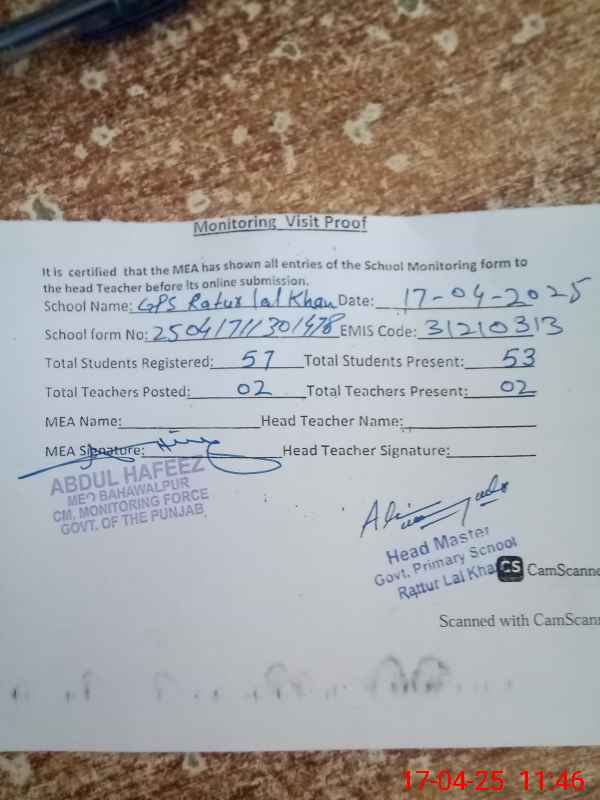 Monitoring Visit Proof
It is certified that the MEA has shown all entries of the School Monitoring form to
the head Teacher before its online submission.
School Name: GPS Ratur lal Khan Date: 17-04-2025
School form No: 25041711301478 EMIS Code: 31210313
Total Students Registered: 57 Total Students Present: 53
Total Teachers Posted: 02 Total Teachers Present: 02
MEA Name: Head Teacher Name:
MEA Signature: Head Teacher Signature:
ABDUL HAFEEZ
MEO BAHAWALPUR
CM, MONITORING FORCE
GOVT. OF THE PUNJAB
Head Master
Govt. Primary School
Rattur Lal Kha
CS CamScanne
Scanned with CamScan
17-04-25 11:46